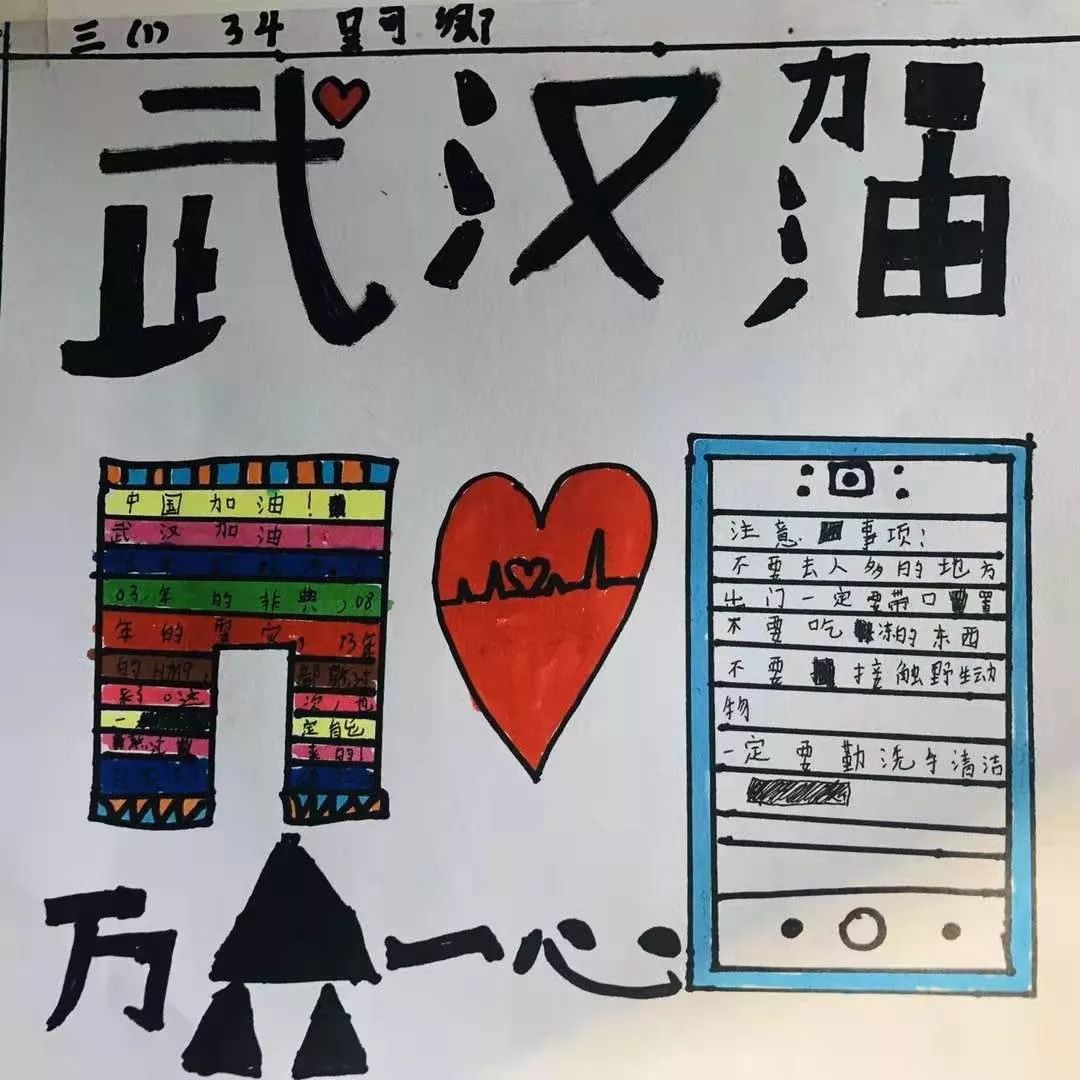 三（1） 34
武汉加油
中国加油！
武汉加油！
03年的非典，08
年的雪灾，13年
的H7N9，
次，也
一定自己
来的！
注意事项：
不要去人多的地方
出门一定要带口罩
不要吃冻的东西
不要接触野生动
物
一定要勤洗手清洁
万众一心